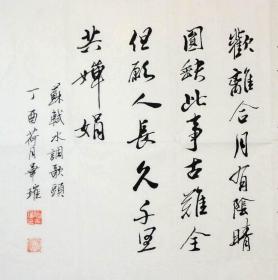 歡離合月有陰晴
圓缺此事古難全
但願人長久千里
共嬋娟
蘇軾水調歌頭
丁酉荷月華璀